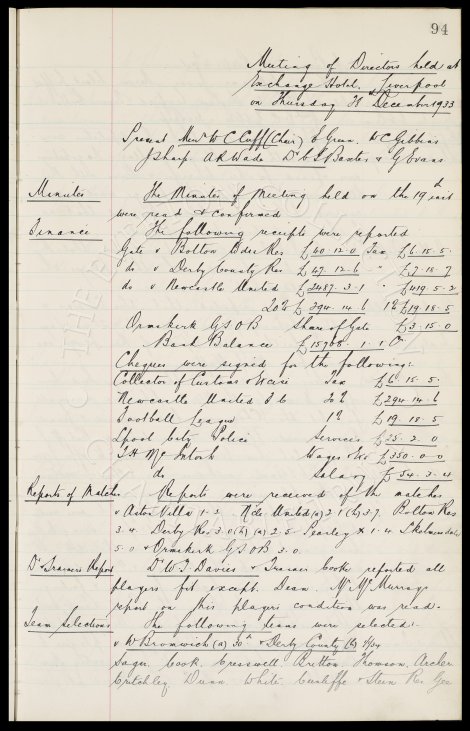 94
Meeting of Directors held at
Exchange Hotel, Liverpool
on Thursday 28 December 1933
Present Messrs W C Cuff (Chair) E Green. W C Gibbins
J Sharp. A R Wade Dr C S Baxter & G Evans
Minutes The Minutes of Meeting held on the 19th inst
were read & confirmed
Finance The following receipts were reported
Gate v Bolton Wdrs Res £40.12.0 Tax £6.15.5.
do v Derby County Res £47.12.6 " £7.18.7
do v Newcastle United £2487.3.1 " £419.5.2
20% £294.14.6 1% £19.18.5
Ormskirk G S O B Share of Gate £3.15.0
Bank Balance £15708.1.10
Cheques were signed for the following:
Collector of Customs & Excise Tax £6.15.5.
Newcastle United F C 20% £294.14.6
Football League 1% £19.18.5
Lpool City Police Services £25.2.0
T H McIntosh Wages &c £350.0.0
do Salary £54.3.4
Reports of Matches Reports were received of the matches
v Aston Villa 1.2. Ncle. United (a) 2.1 (h) 3.7. Bolton Res
3.4. Derby Res 3.0 (h) (a) 2.5. Fearley X 1.4. Skelmersdale
5.0 & Ormskirk G S O B 3.0.
Drs Trainers Report Dr W J Davies & Trainer Cooke reported all
players fit except Dean. Mr McMurray
report on this players condition was read.
Team Selections The following teams were selected:-
v W Bromwich (a) 30th & Derby County (h) 1/1/34
Sagar. Cook. Cresswell. Britton. Thomson. Archer
Critchley. Dunn. White. Cunliffe & Stein Res Gee